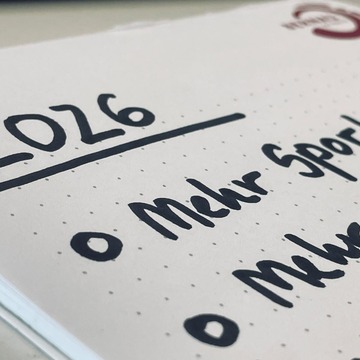 2026
o Mehr Sport
o Mehr